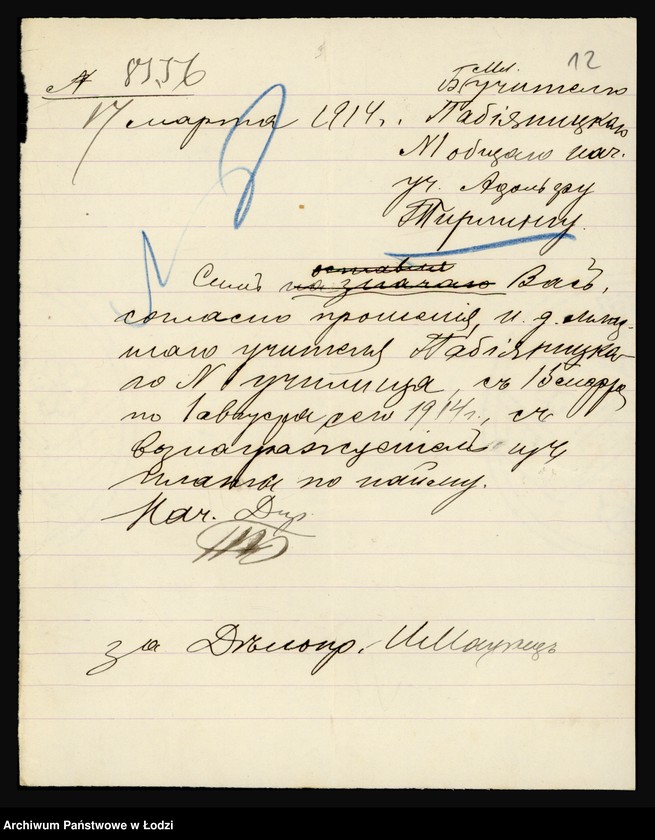 12
№ 8536
17 марта 1914 г.
Мл.
Б. учителю
Пабіяницкаго
№1 общаго нач.
уч. Адольфу
Тирлингу.
оставляя
Симъ назначаю Васъ,
согласно прошенія, и. д. млад-
шаго учителя Пабіяницка-
го № училища, съ 1
по 1 августа сего 1914 г., съ
вознагражденіемъ изъ
платы по найму.
Нач. Дир.
за Дѣлопр.
Archiwum Państwowe w Łodzi